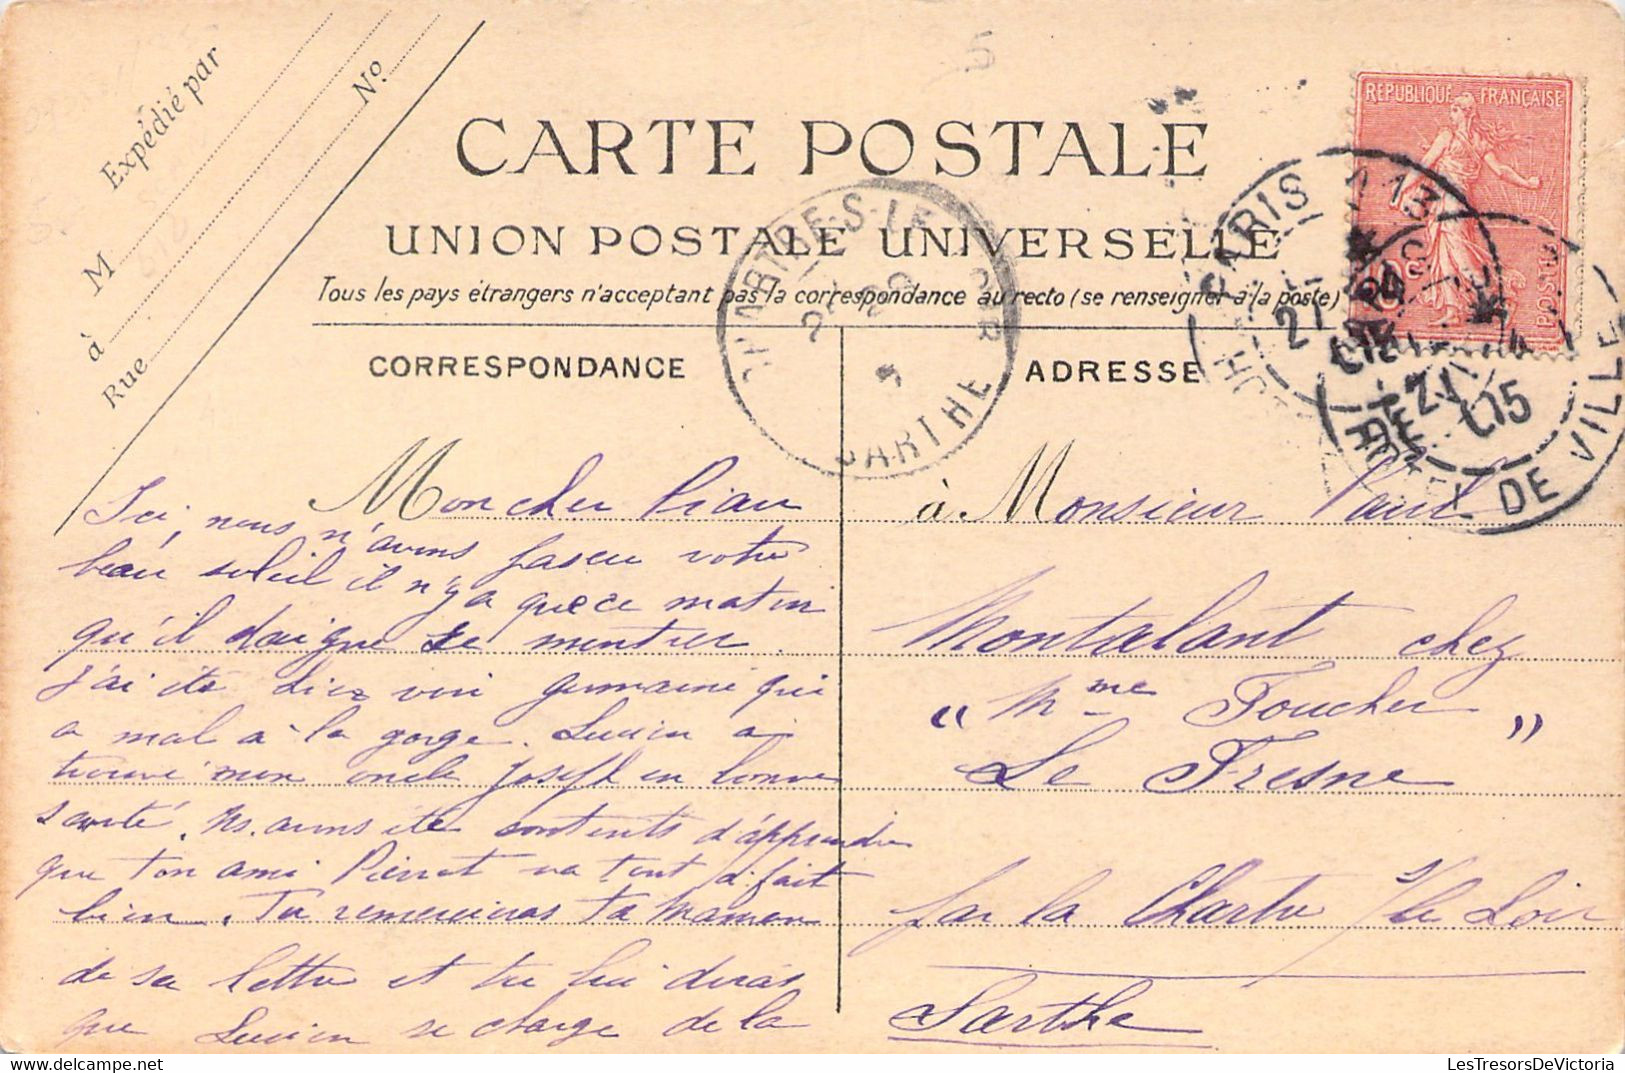 Expédié par
M
à
Rue Nº
5
CARTE POSTALE
UNION POSTALE UNIVERSELLE
Tous les pays étrangers n'acceptent pas la correspondance au recto (se renseigner à la poste)
CORRESPONDANCE
ADRESSE
REPUBLIQUE FRANÇAISE
10c
POSTES
PARIS 113
21
HOTEL DE VILLE
CHARTRE-S-LE LOIR
SARTHE
Mon cher
Ici, nous n'avons pas eu votre
beau soleil il n'y a que ce matin
qu'il daigne se montrer.
J'ai été hier voir germaine qui
a mal à la gorge. Lucien a
trouvé mon oncle Joseph en bonne
santé. Ns. avons été contents d'apprendre
que ton ami Pierrot va tout à fait
bien. Tu remercieras ta Maman
de sa lettre et tu lui diras
que Lucien se charge de la
à Monsieur Paul
Montalant chez
"Mme Foucher"
Le Fresne
par la Chartre s/le Loir
Sarthe
LesTresorsDeVictoria